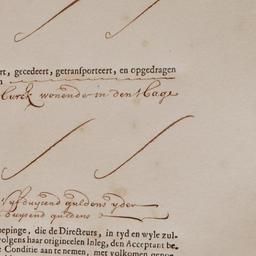 rt, gecedeert, getransporteert, en opgedragen
n
Curck wonende in den Hage
Vyfduysend guldens yder
duysend guldens
epinge, die de Directeurs, in tyd en wyle zul-
volgens haar origineelen Inleg, den Acceptant be-
e Conditie aan te nemen, met volkomen